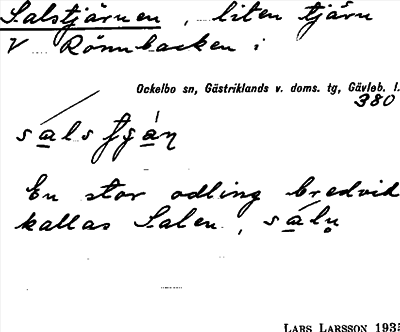 Salstjärnen, liten tjärn
V Rönnbacken i
Ockelbo sn, Gästriklands v. doms. tg, Gävleb. l.
380
En stor odling bredvid
kallas Salen,
LARS LARSSON 193